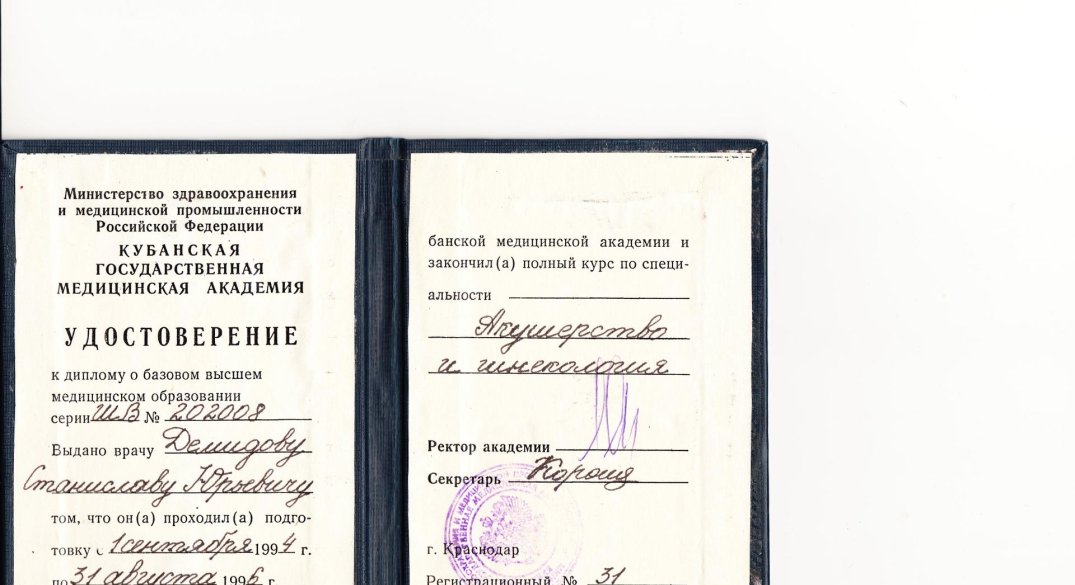 Министерство здравоохранения
и медицинской промышленности
Российской Федерации
КУБАНСКАЯ
ГОСУДАРСТВЕННАЯ
МЕДИЦИНСКАЯ АКАДЕМИЯ
УДОСТОВЕРЕНИЕ
к диплому о базовом высшем
медицинском образовании
серии ШВ № 202008
Выдано врачу Демидову
Станиславу Юрьевичу
том, что он(а) проходил(а) подго-
товку с 1 сентября 1994 г.
по 31 августа 1996 г.
банской медицинской академии и
закончил(а) полный курс по специ-
альности
Акушерство
и гинекология
Ректор академии
Секретарь
г. Краснодар
Регистрационный № 31